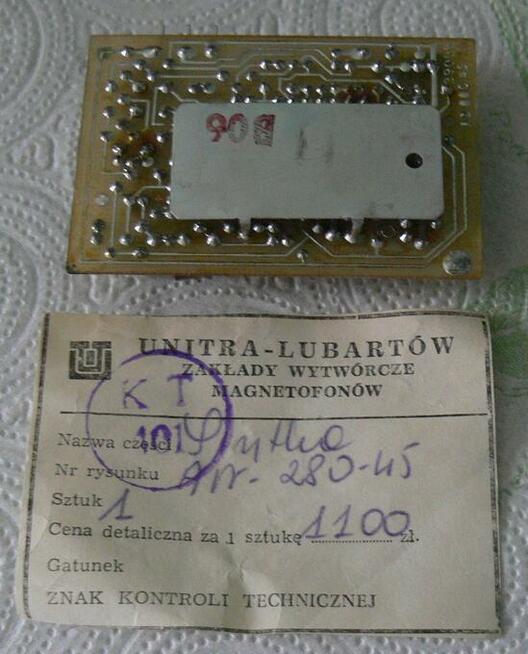 UNITRA-LUBARTÓW
ZAKŁADY WYTWÓRCZE
MAGNETOFONÓW
K T
101
Nazwa części Płytka
Nr rysunku 280-45
Sztuk 1
Cena detaliczna za 1 sztukę 1100 zł.
Gatunek
ZNAK KONTROLI TECHNICZNEJ